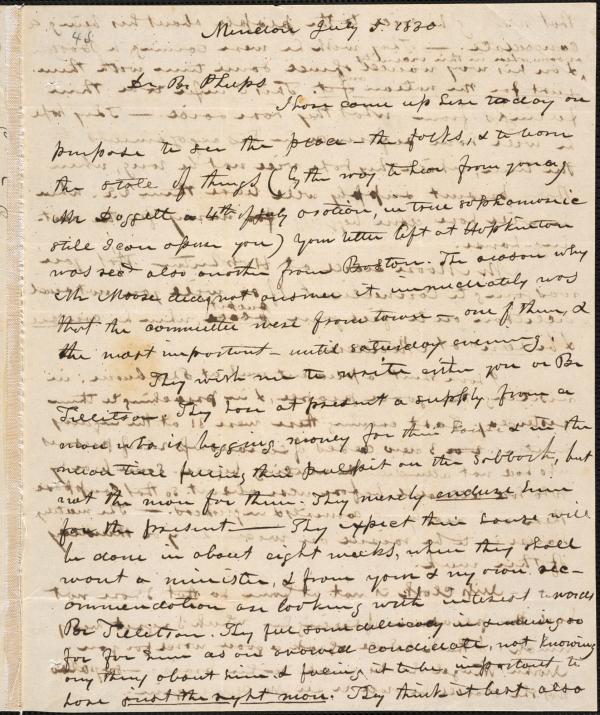 48
Mendon July 5. 1830
Dr Br. Phelps
I have come up here today on
purpose to see the place - the folks, & to learn
the state of things (by the way to hear from young
Mr Doggett a 4th of July oration, in true sophamoric
stile I can assure you) Your letter left at Hopkinton
was recd also another from Boston. The reason why
Mr Moore did not answer it immediately was
that the committee were from town - one of them, &
the most important - until saturday evening.
They wish me to write either you or Br
Tillitson. They have at present a supply from a
man who is begging money for their house & in the
mean time filling their pulpit on the Sabbath, but
not the man for them. They merely endure him
for the present — They expect their house will
be done in about eight weeks, when they shall
want a minister, & from your & my own rec-
ommendation are looking with interest towards
Br Tillitson. They feel some delicacy in sending so
far for him as an avowed candidate, not knowing
any thing about him & feeling it to be important to
have just the right man. They think it best also